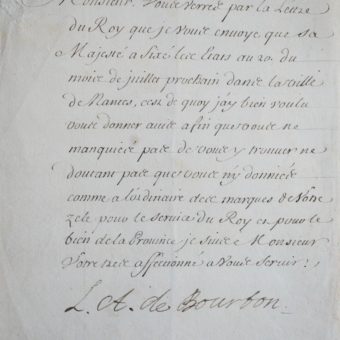 Monsieur. Vous verrés par la Lettre
du Roy que je vous envoye que sa
Majesté a fixé les Etats au 20. du
mois de juillet prochain dans la ville
de Nantes, c'est de quoy j'ay bien voulu
vous donner avis afin que vous ne
manquiés pas de vous y trouver ne
doutant pas que vous ny donniés
comme a l'ordinaire des marques de votre
zele pour le service du Roy et pour le
bien de la Province je suis Monsieur
Votre tres affectionné a Vous servir:
L. A. de Bourbon.